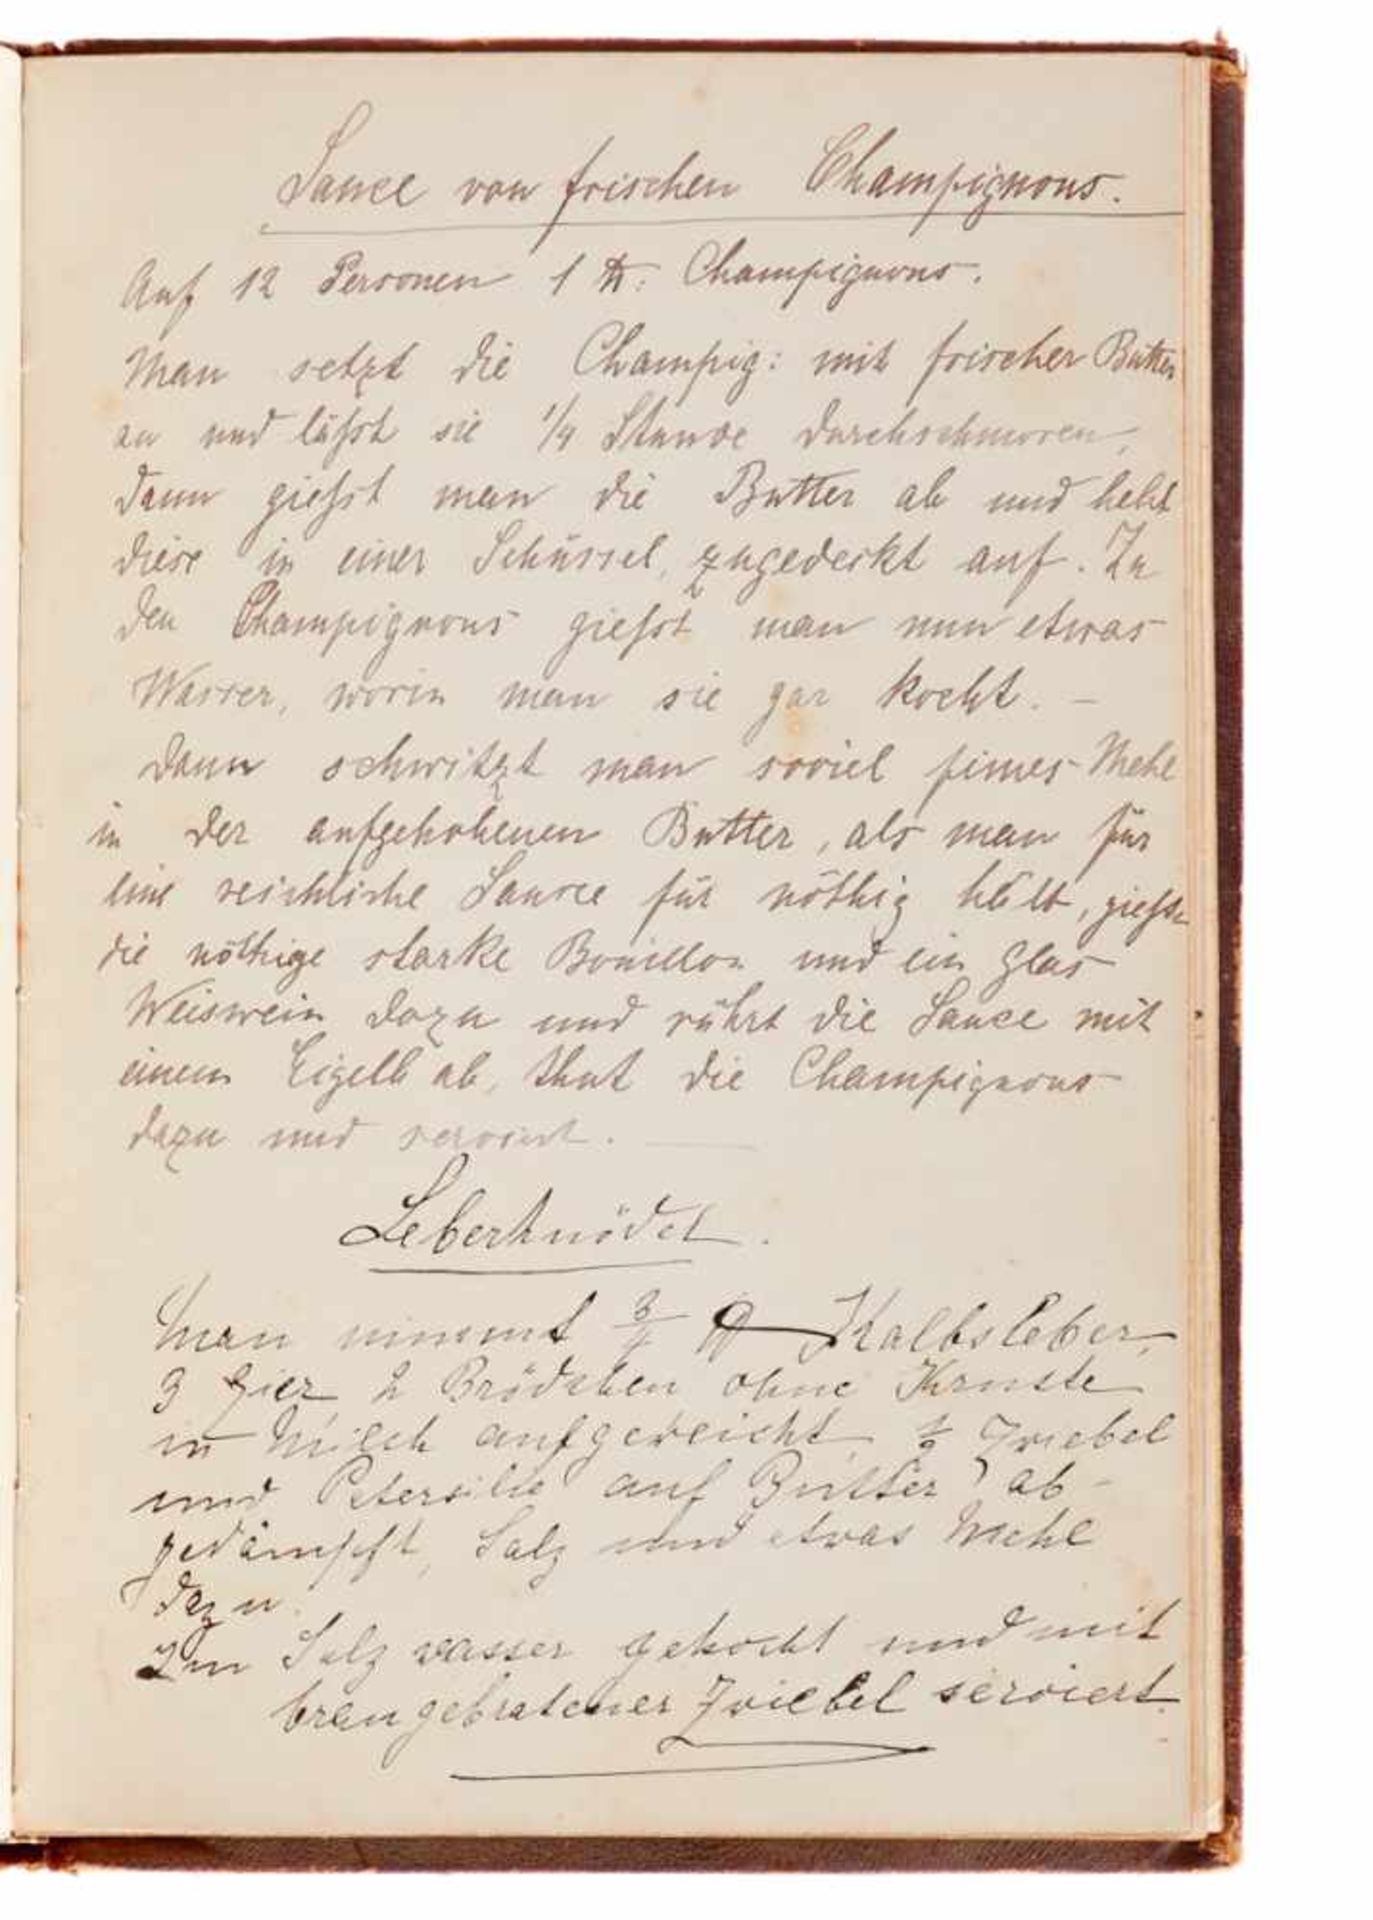 Sauce von frischen Champignons.
Auf 12 Personen 1 ℔: Champignons.
Man setzt die Champig: mit frischer Butter
an und läßt sie 1/4 Stunde durchschmoren,
dann gießt man die Butter ab und hebt
diese in einer Schüssel, zugedeckt auf. Zu
den Champignons gießt man nun etwas
Wasser, worin man sie gar kocht. –
Dann schwitzt man soviel feines Mehl
in der aufgehobenen Butter, als man für
eine reichliche Sauce für nöthig hält, gießt
die nöthige starke Bouillon und ein Glas
Weiswein dazu und rührt die Sauce mit
einem Eigelb ab, thut die Champignons
dazu und servirt. —
Leberknödel.
Man nimmt 3/4 ℔ Kalbsleber,
3 Eier 2 Brödchen ohne Kruste
in Milch aufgeweicht 1/2 Zwiebel
und Petersilie auf Butter ab-
gedämpft, Salz und etwas Mehl
dazu.
Im Salzwasser gekocht und mit
braungebratener Zwiebel serviert.